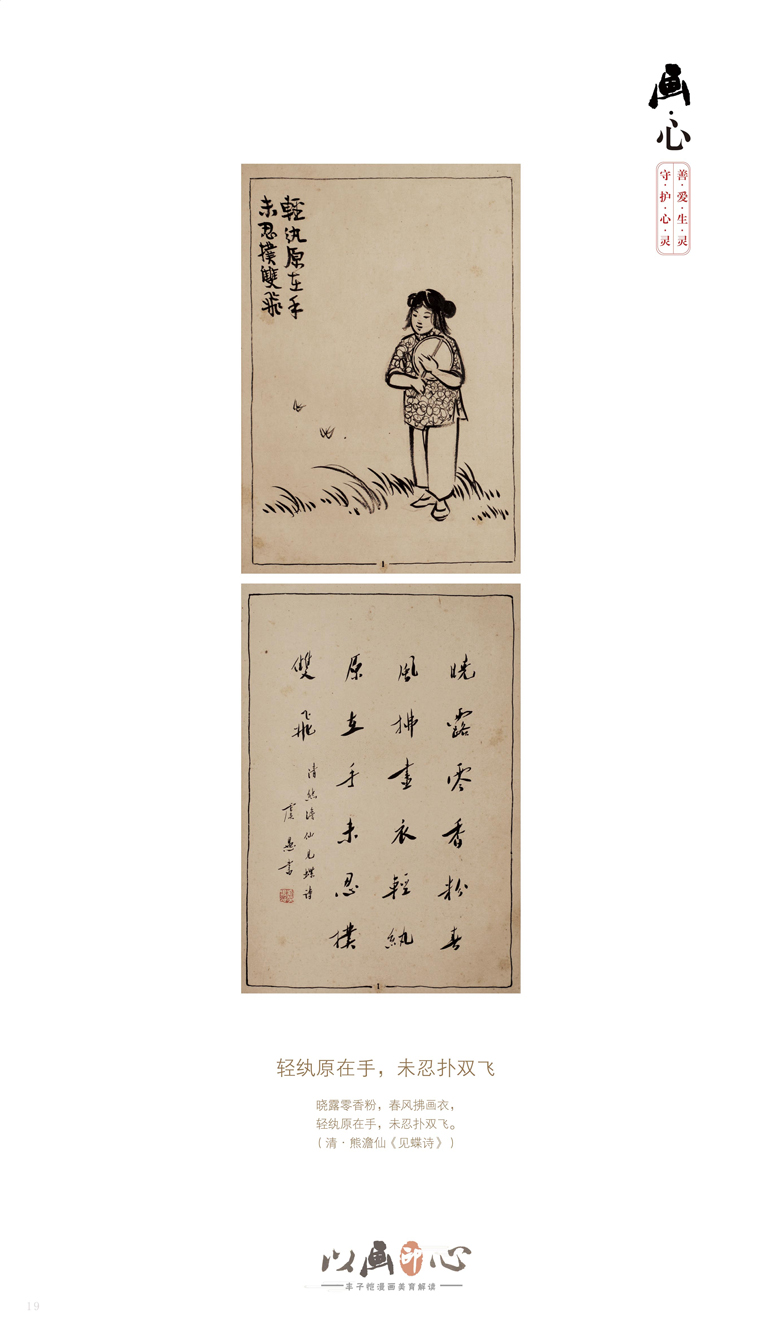 画·心
善·爱·生·灵
守·护·心·灵
輕紈原在手
未忍撲雙飛
1
曉露零香粉春
風拂畫衣輕紈
原在手未忍撲
雙飛
清熊澹仙見蝶詩
虞愚書
1
轻纨原在手，未忍扑双飞
晓露零香粉，春风拂画衣，
轻纨原在手，未忍扑双飞。
（清·熊澹仙《见蝶诗》）
以画印心
丰子恺漫画美育解读
19